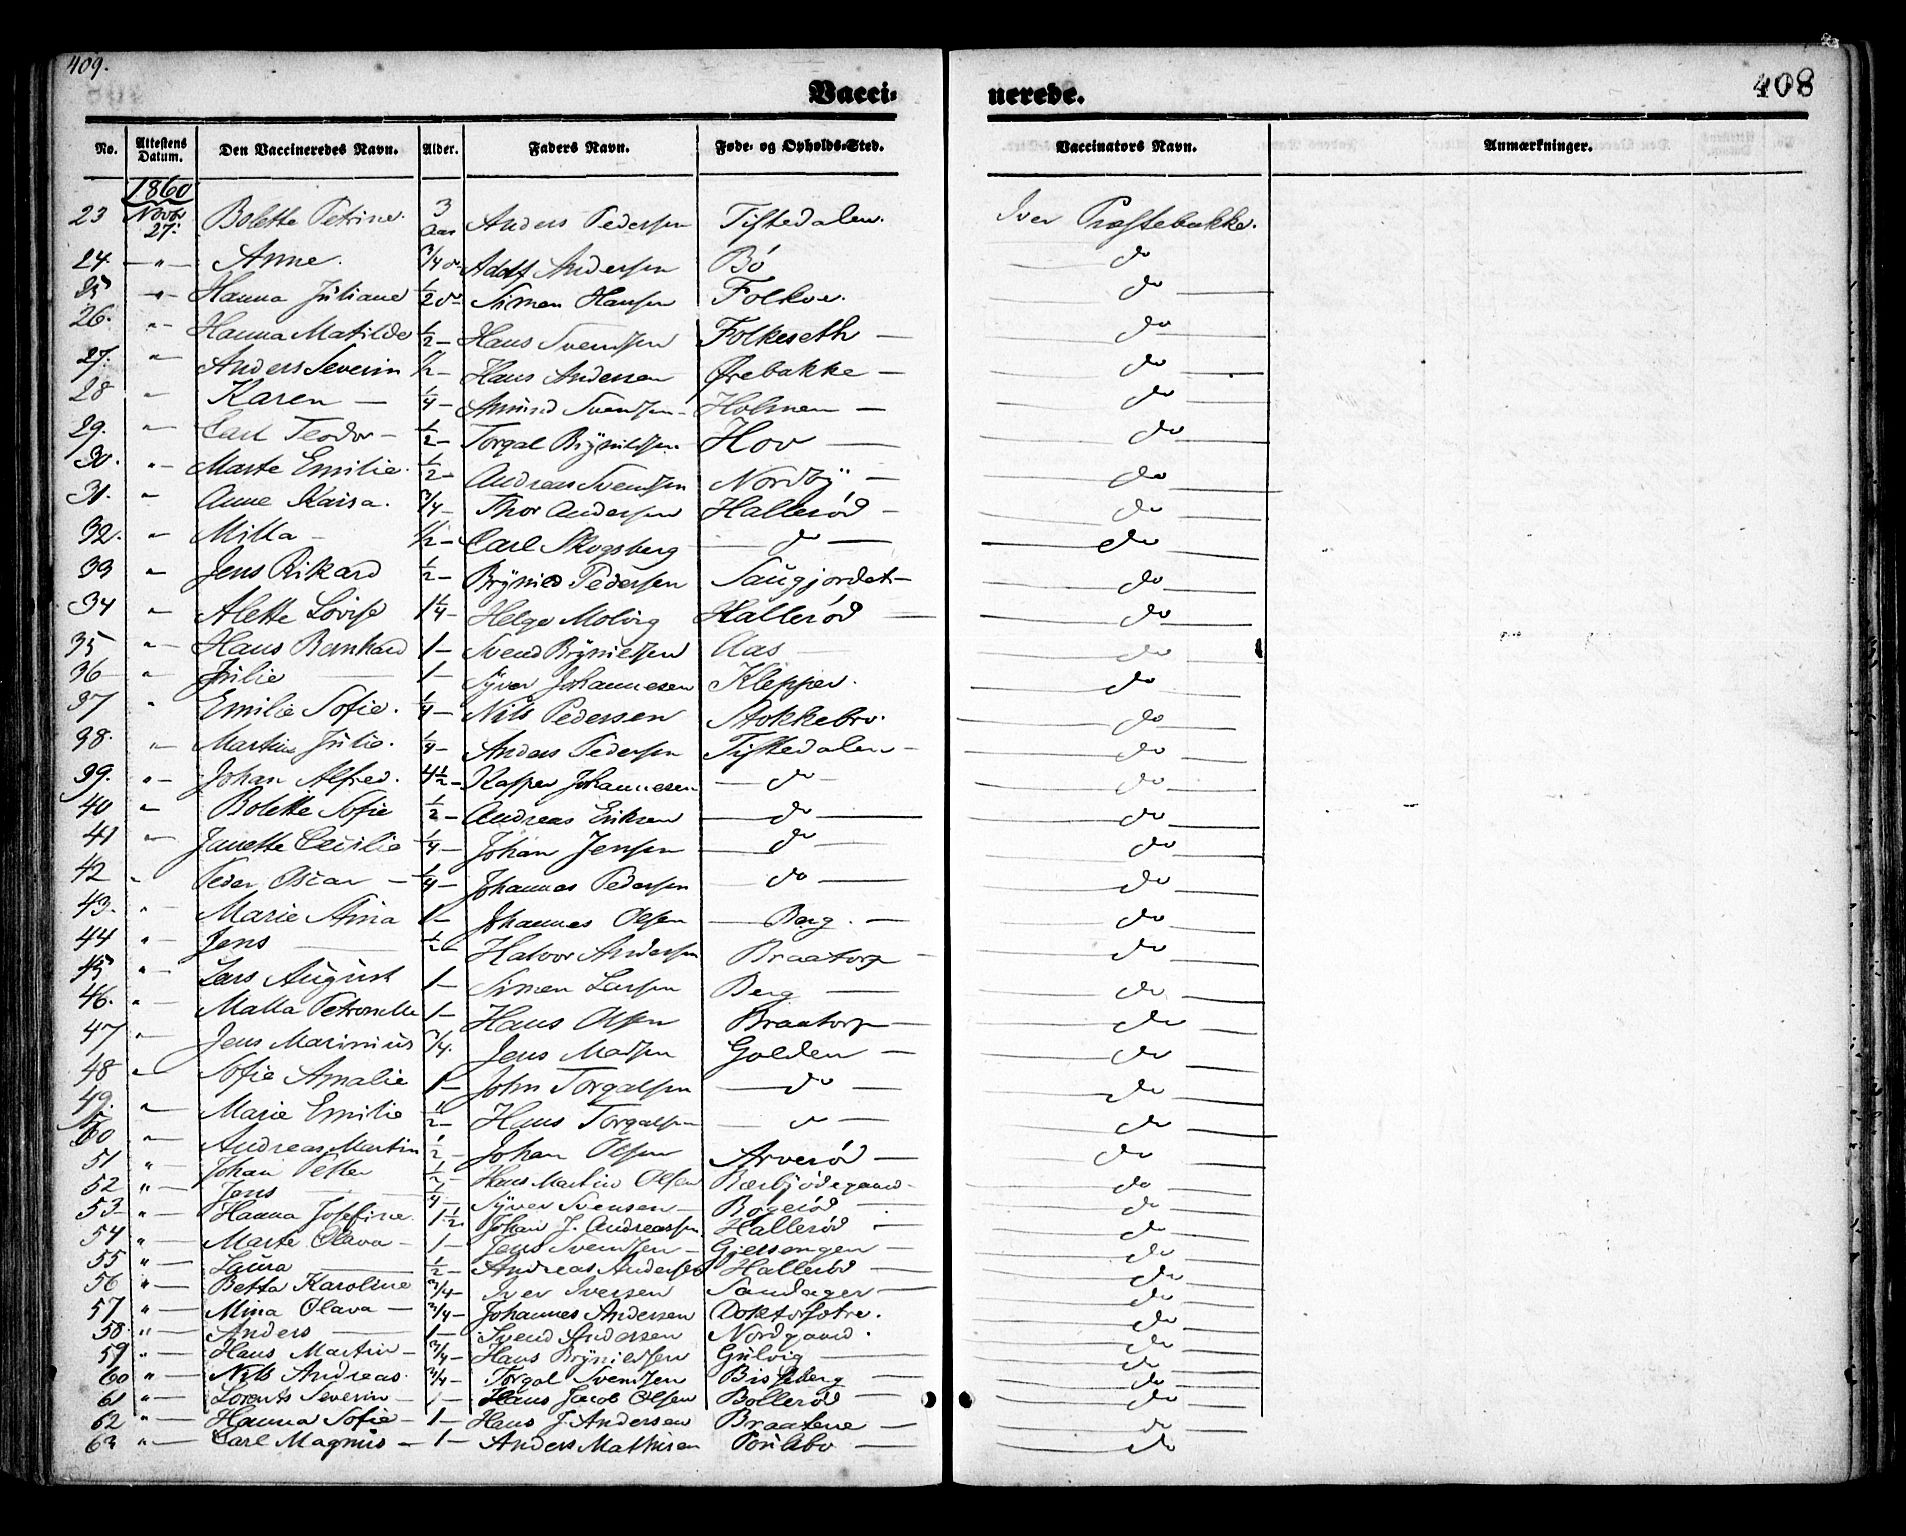 409.
408
Vacci-
nerede.
No. Attestens Datum. Den Vaccineredes Navn. Alder. Faders Navn. Føde- og Opholds-Sted. Vaccinators Navn. Anmærkninger.
1860
23 Novbr 27. Bolette Petrine. 3 aar Anders Pedersen Tistedalen. Iver Præstebakke.
24. " Anne. 3/4 Adolf Andersen Bø do
25 " Hanna Juliane 1/2 Simen Hansen do
26. " Hanna Matilde 1/2 Hans Svendsen Folkeseth do
27. " Anders Severin 1/2 Hans Andersen Ørebakke do
28 " Karen 1/4 Amund Svendsen Holmen do
29. " Carl Teodor 1/2 Torgal Brynildsen Hov do
30. " Marte Emilie. 1/2 Andreas Svendsen Nordby do
31. " Anne Kaisa. 3/4 Thor Andersen Hallerød do
32. " Milla 1/2 Carl Skogsberg do do
33 " Jens Rikard 1/2 Brynild Pedersen Saugjordet do
34 " Alette Lovise 1 1/4 Helge Molvig Hallerød do
35 " Hans Bernhard 1 Svend Brynildsen Aas do
36 " Julie 1 Syver Johannesen Klepper. do
37 " Emilie Sofie. 1/4 Nils Pedersen Stokkebro. do
38. " Martine Julie. 1/4 Anders Pedersen Tistedalen do
39. " Johan Alfred. 4 1/2 Kasper Johannesen do do
40 " Bolette Sofie 1/2 Andreas Eriksen do do
41 " Janette Cecilie 1/4 Johan Jensen do do
42 " Peder Oscar 1/4 Johannes Pedersen do do
43. " Marie Stina 1 Johannes Olsen Berg. do
44 " Jens 1/2 Halvor Andersen Braatorp do
45 " Lars August 1 Simen Larsen Berg do
46. " Malla Petronelle 1 Hans Olsen Braatorp do
47 " Jens Marinius 3/4. Jens Madsen Golden do
48 " Sofie Amalie 1 John Torgalsen do do
49. " Marie Emilie 1/2 Hans Torgalsen do do
50 " Andreas Martin 1/2 Johan Olsen Arverød do
51 " Johan Petter 1/2 Hans Martin Olsen do
52 " Jens Syver Svensen Bøgerød do
53 " Hanna Josefine 1 1/2 Johan J. Andreassen Hallerød do
54 " Marte Olava 1 Jens Svendsen Gjersengen do
55 " Laura 1/2 Andreas Andersen Hallerød do
56 " Betta Karoline 3/4 Iver Iversen Sandager do
57 " Mina Olava 3/4 Johannes Andersen do
58. " Anders 1 Svend Andersen Nordgaard. do
59 " Hans Martin 3/4 Hans Brynildsen Gulvig do
60 " Nils Andreas. 3/4 Torgal Svendsen Bisseberg do
61 " Lorents Severin 1 Hans Jacob Olsen Bollerød do
62 " Hanna Sofie 1 Hans J. Andersen Braatene do
63 " Carl Magnus 1 Anders Mathisen do